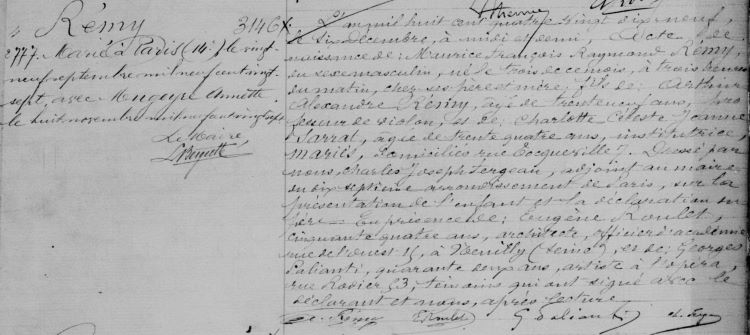 Rémy
3146
2777.
Marié à Paris (14e) le vingt
neuf septembre mil neuf cent vingt
sept, avec Annette
le huit novembre mil neuf cent vingt sept
Le Maire
L'an mil huit cent quatre vingt dix neuf,
le six Décembre, à midi et demi, Acte de
naissance de: Maurice François Raymond Rémy,
du sexe masculin, né le trois de ce mois, à trois heures
du matin, chez ses père et mère; fils de: Arthur
Alexandre Rémy, âgé de trente cinq ans, pro
fesseur de violon, et de: Charlotte Céleste Jeanne
Sarrat, agée de trente quatre ans, institutrice,
mariés, domiciliés rue Tocqueville 7. Dressé par
nous, Charles Joseph Tergeau, adjoint au maire
du dix septième arrondissement de Paris, sur la
présentation de l'enfant et la déclaration du
père. En présence de: Eugène Roulet,
cinquante quatre ans, architecte, officier d'académie
rue de l'ouest 15, à Neuilly (Seine), et de: Georges
Palianti, quarante deux ans, artiste à l'opéra,
rue Rodier 53; témoins qui ont signé avec le
déclarant et nous, après lecture.
Rémy ERoulet G Palianti